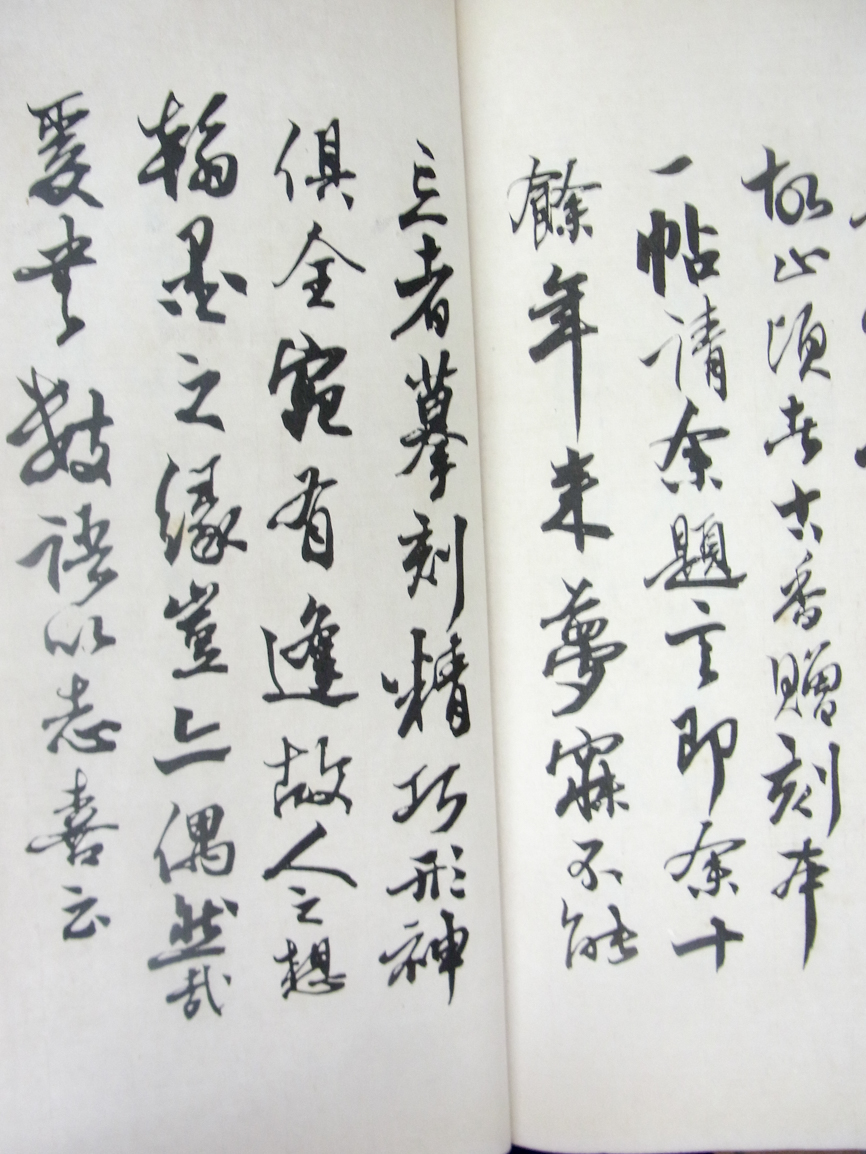 故山頃者古香贈刻本
一帖請余題之即余十
餘年來夢寐不能
忘者摹刻精巧形神
俱全宛有逢故人之想
翰墨之緣豈亦偶然哉
爰書數語以志喜云